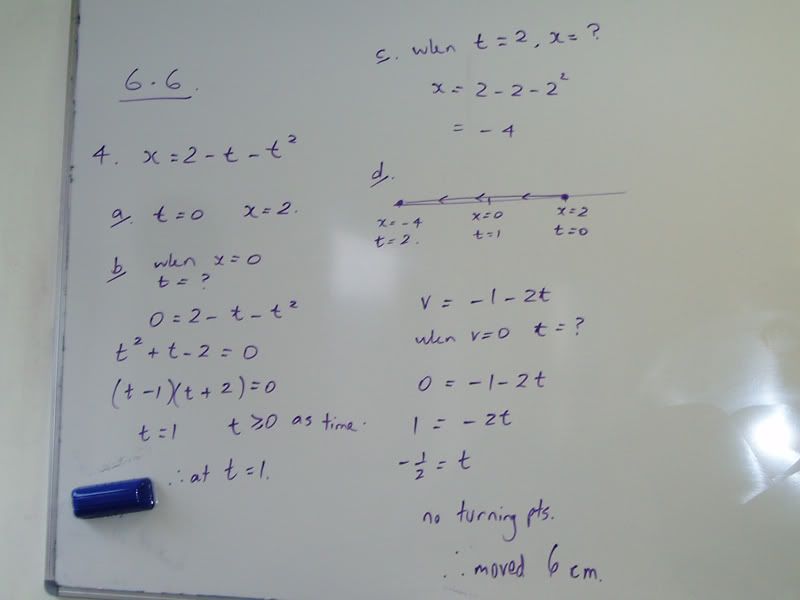 6.6.
4. x = 2 - t - t²
a. t = 0 x = 2.
b. when x = 0
t = ?
0 = 2 - t - t²
t² + t - 2 = 0
(t - 1)(t + 2) = 0
t = 1 t ≥ 0 as time.
∴ at t = 1.
c. when t = 2, x = ?
x = 2 - 2 - 2²
= -4
d.
x = -4 x = 0 x = 2
t = 2. t = 1 t = 0
v = -1 - 2t
when v = 0 t = ?
0 = -1 - 2t
1 = -2t
-1/2 = t
no turning pts.
∴ moved 6 cm.